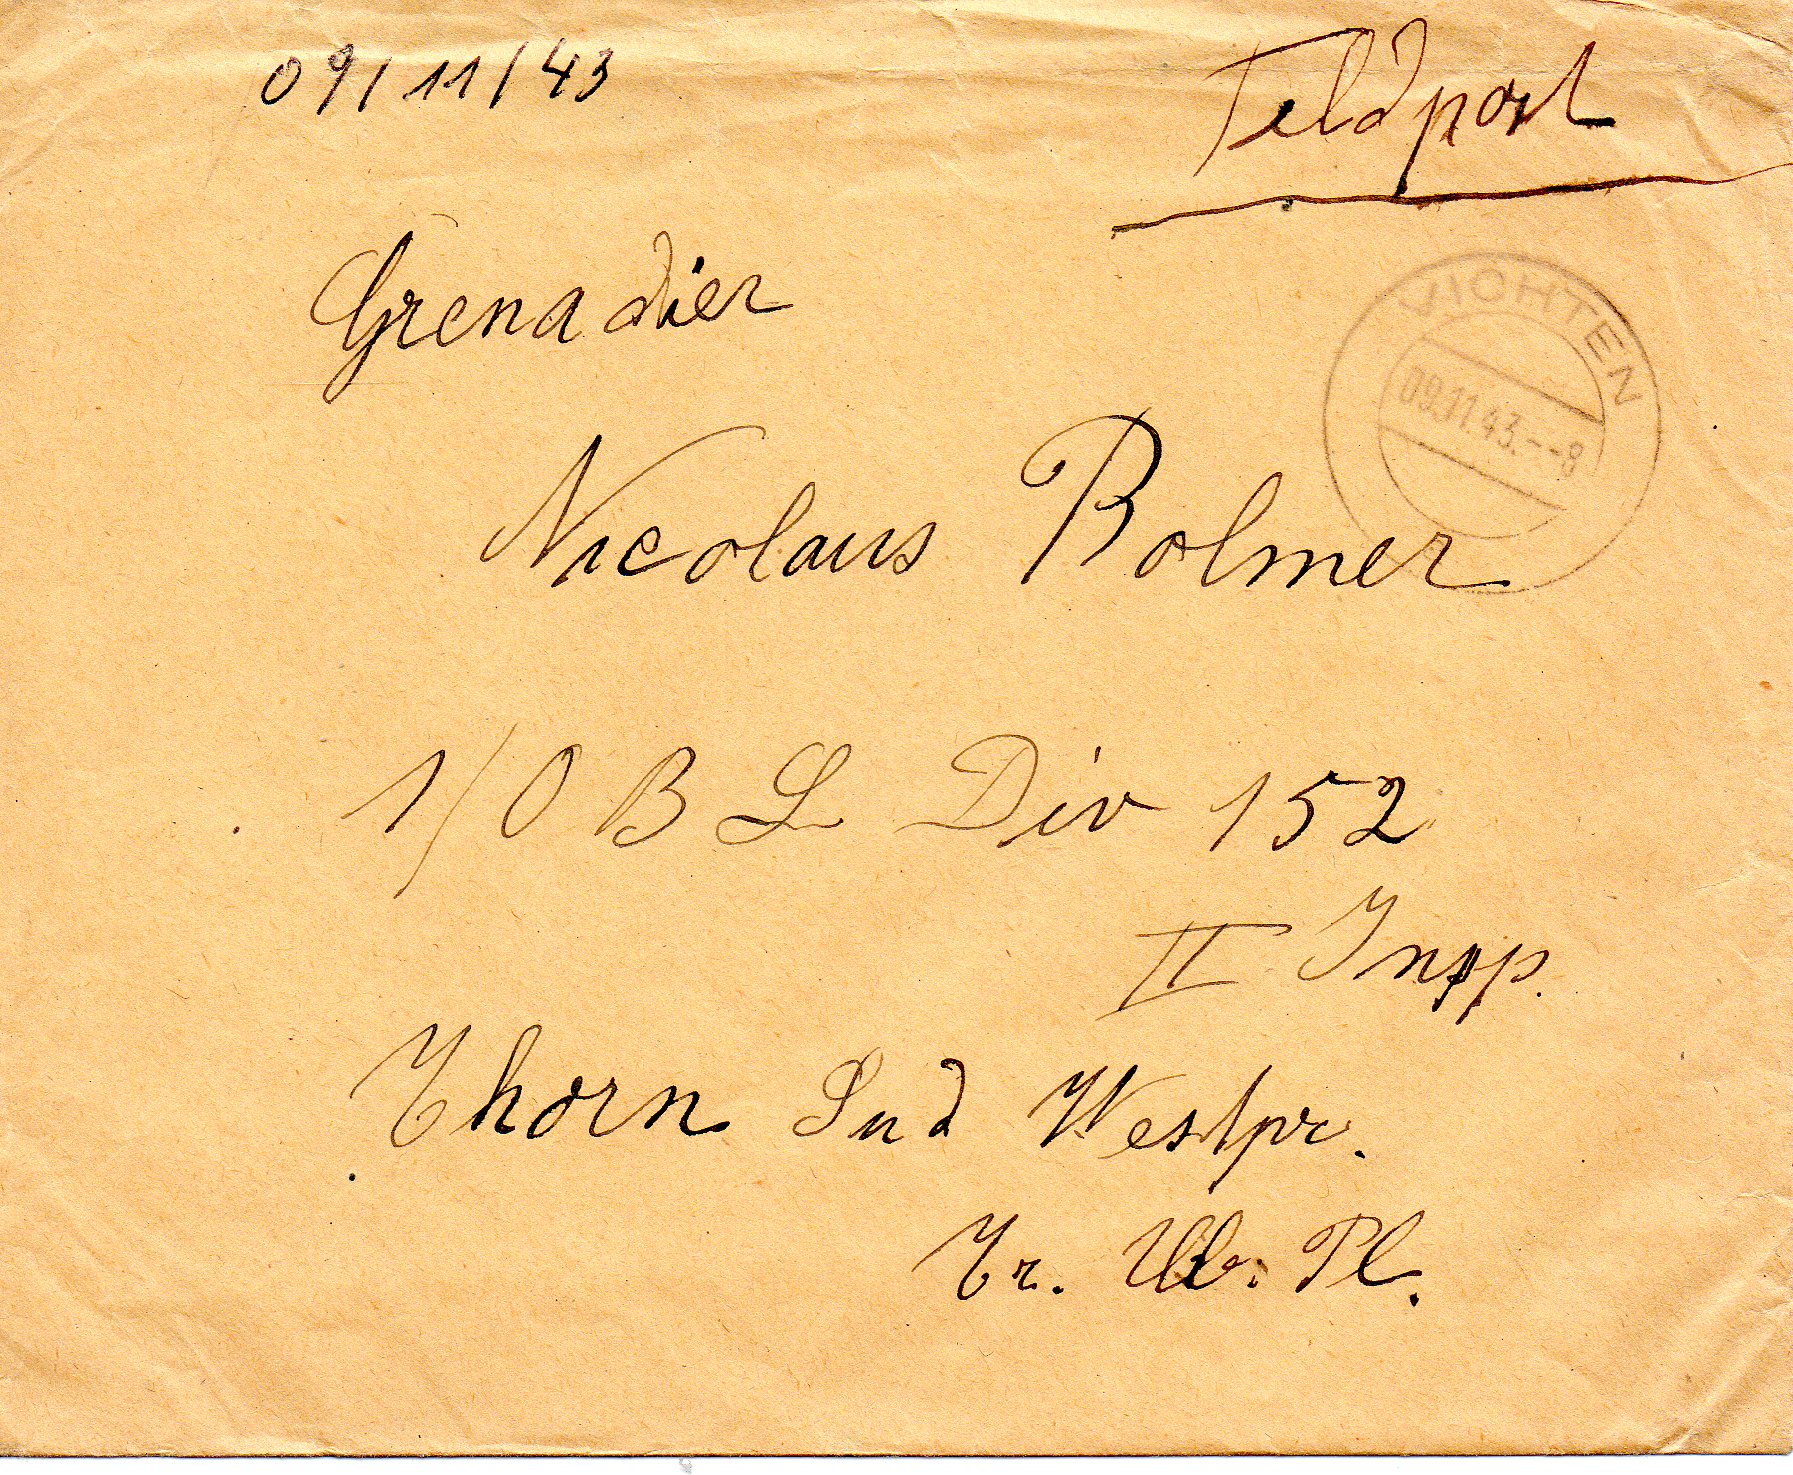 09/11/43
Feldpost
Grenadier
VICHTEN
09.11.43.--8
Nicolaus Bolmer
1/O B L Div 152
II Inpp.
Thorn Sud Westpr.
Tr. Üb. Pl.